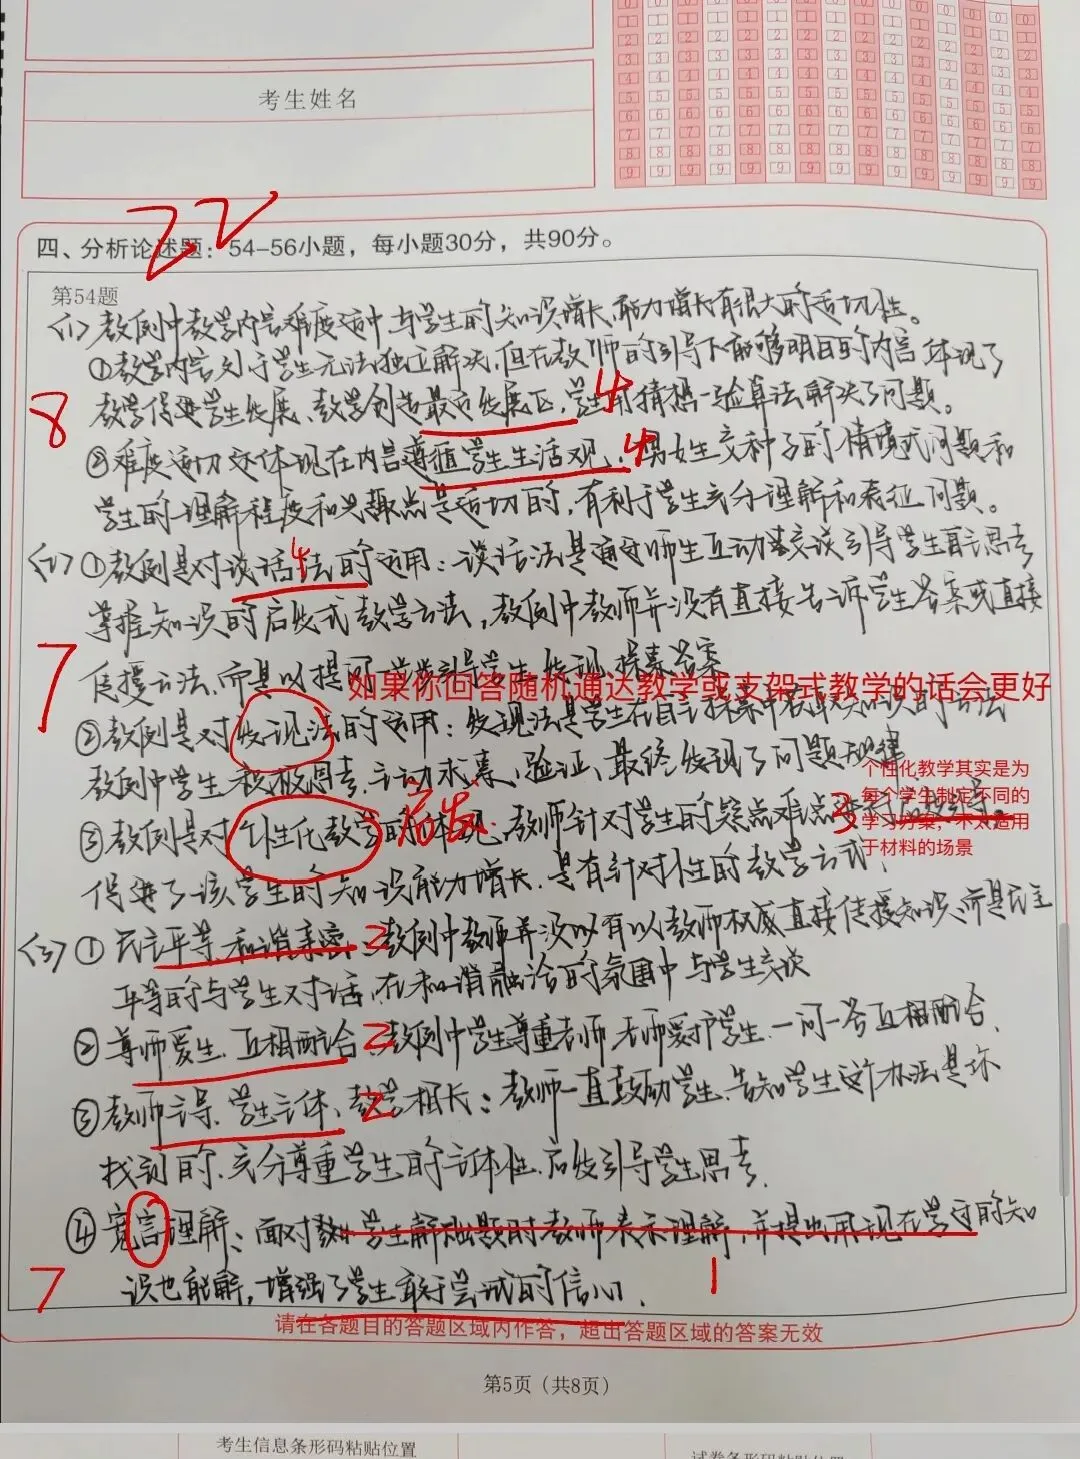 考生姓名
22
四、分析论述题：54-56小题，每小题30分，共90分。
第54题
<1> 教例中教学内容难度适中与学生的知识增长、能力增长有很大的适切性。
①教学内容处于学生无法独立解决,但在教师的引导下能够明白的内容 体现了
8
教学促进学生发展、教学创造最近发展区,学生用猜想—验算法解决了问题。
4
②难度适切还体现在内容遵循学生生活观、男女生交种子的情境式问题和
4
学生的理解程度和兴趣点是适切的,有利于学生充分理解和表征问题。
<2> ①教例是对谈话法的运用：谈话法是通过师生互动交谈引导学生自主思考
4
掌握知识的启发式教学方法,教例中教师并没有直接告诉学生答案或直接
7
传授方法,而是以提问一步步引导学生发现、探索答案
如果你回答随机通达教学或支架式教学的话会更好
②教例是对发现法的运用：发现法是学生在自主探索中获取知识的方法
教例中学生积极思考、主动求索、验证、最终发现了问题规律
个性化教学其实是为
每个学生制定不同的
学习方案，不太适用
于材料的场景
③教例是对个性化教学的体现,教师针对学生的疑点难点进行启发引导。
启发
3
促进了该学生的知识能力增长,是有针对性的教学方式.
<3> ① 民主平等、和谐亲密：教例中教师并没以有以教师权威直接传授知识,而是民主
2
平等的与学生对话,在和谐融洽的氛围中与学生交谈
②尊师爱生、互相配合：教例中学生尊重老师,老师爱护学生.一问一答互相配合.
2
③教师主导、学生主体、教学相长：教师一直鼓励学生、告知学生这个办法是你
2
找到的、充分尊重学生的主体性.启发引导学生思考.
④宽容理解：面对学生解出题时教师表示理解,并提出用现在学过的知
7
识也能解,增强了学生敢于尝试的信心.
1
请在各题目的答题区域内作答，超出答题区域的答案无效
第5页（共8页）
考生信息条形码粘贴位置